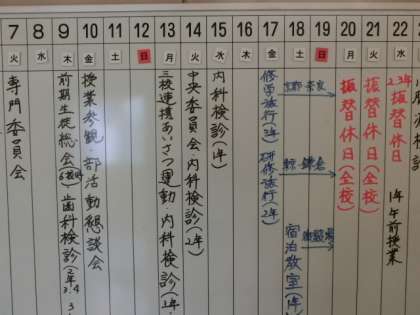 7 8 9 10 11 12 13 14 15 16 17 18 19 20 21 22
火 水 木 金 土 日 月 火 水 木 金 土 日 月 火 水
専門委員会
前期生徒総会(6校時) 歯科検診
授業参観・部活動懇談会
三校連携あいさつ運動 内科検診
中央委員会 内科検診(2年)
内科検診(1年)
修学旅行(3年) 研修旅行(2年)
京都・奈良
東京・鎌倉
宿泊教室(1年
振替休日(全校)
振替休日(全校)
2.3年振替休日 1年午前授業